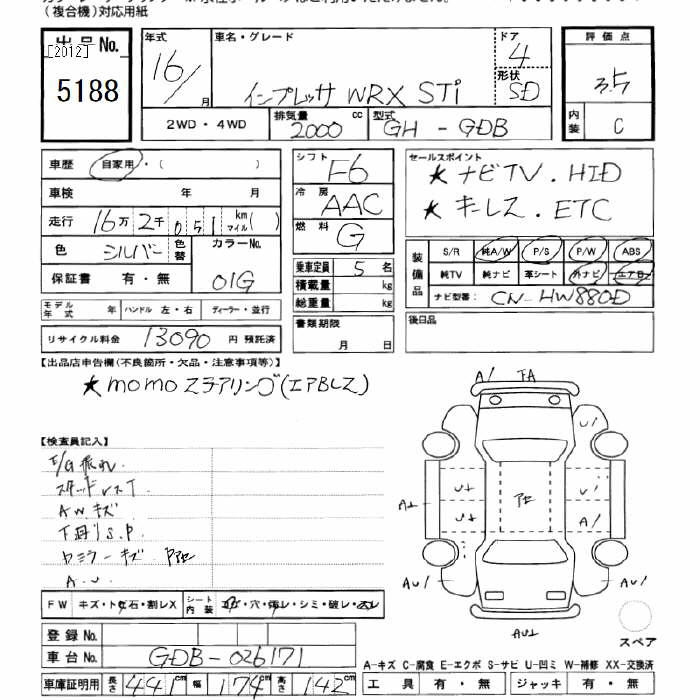 (複合機)対応用紙
出品No. [2012] 5188
年式 16/ 月
車名・グレード インプレッサ WRX STi
ドア 4
形状 SD
評価点 3.5
内装 C
2WD・4WD
排気量 2000 cc
型式 GH-GDB
車歴 自家用・( )
車検 年 月
走行 16万2千051 km マイル( )
色 シルバー 色替 カラーNo. 01G
保証書 有・無
モデル年式 年 ハンドル 左・右 ディーラー・並行
リサイクル料金 13090 円 預託済
シフト F6
冷房 AAC
燃料 G
乗車定員 5 名
積載量 kg
総重量 kg
書類期限 月 日
セールスポイント
★ナビTV.HID
★キーレス.ETC
装備品 S/R 純A/W P/S P/W ABS
純TV 純ナビ 革シート 外ナビ エアB
ナビ型番: CN-HW880D
後日品
【出品店申告欄(不良箇所・欠品・注意事項等)】
★momoステアリング(エアBレス)
【検査員記入】
A.W.キズ
下廻りS.P.
FW キズ・ト石・割レX シート内装 コゲ・穴・切レ・シミ・破レ・スレ
登録No.
車台No. GDB-026171
車庫証明用 長さ 441cm 幅 174cm 高さ 142cm
A/
U/
A/
AU/
AU/
スペア
A-キズ C-腐食 E-エクボ S-サビ U-凹ミ W-補修 XX-交換済
工具 有・無 ジャッキ 有・無